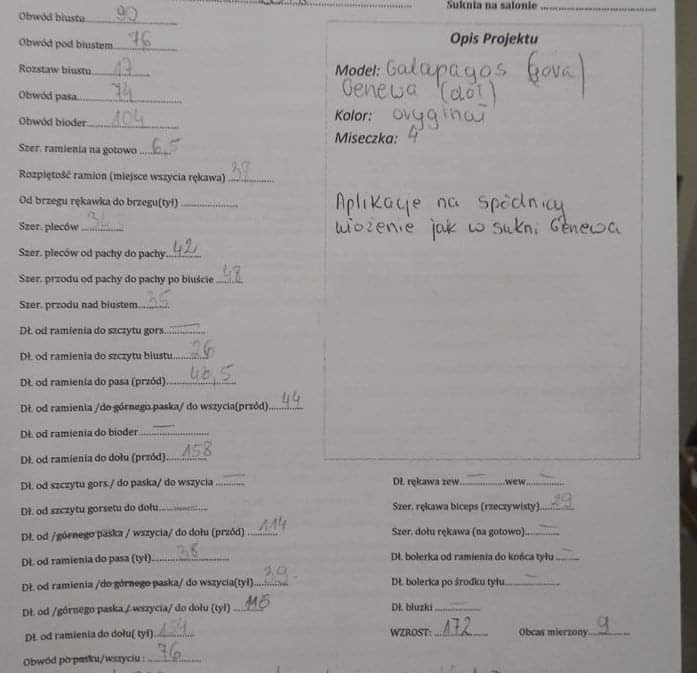 Suknia na salonie
Obwód biustu 90
Obwód pod biustem 76
Rozstaw biustu 17
Obwód pasa 74
Obwód bioder 104
Szer. ramienia na gotowo 6,5
Rozpiętość ramion (miejsce wszycia rękawa) 38
Od brzegu rękawka do brzegu(tył)
Szer. pleców
Szer. pleców od pachy do pachy 42
Szer. przodu od pachy do pachy po biuście 48
Szer. przodu nad biustem 35
Dł. od ramienia do szczytu gors. —
Dł. od ramienia do szczytu biustu 26
Dł. od ramienia do pasa (przód) 46,5
Dł. od ramienia /do górnego paska/ do wszycia(przód) 44
Dł. od ramienia do bioder —
Dł. od ramienia do dołu (przód) 158
Dł. od szczytu gors./ do paska/ do wszycia —
Dł. od szczytu gorsetu do dołu
Dł. od /górnego paska / wszycia/ do dołu (przód) 114
Dł. od ramienia do pasa (tył) 38
Dł. od ramienia /do górnego paska/ do wszycia(tył) 39
Dł. od /górnego paska / wszycia/ do dołu (tył) 115
Dł. od ramienia do dołu( tył) 154
Obwód po pasku/wszyciu : 76
Opis Projektu
Model: Galapagos (góra)
Genewa (dół)
Kolor: oryginał
Miseczka: 4
Aplikacje na spódnicy
włożenie jak w sukni Genewa
Dł. rękawa zew. — wew. —
Szer. rękawa biceps (rzeczywisty) 29
Szer. dołu rękawa (na gotowo) —
Dł. bolerka od ramienia do końca tyłu —
Dł. bolerka po środku tyłu —
Dł. bluzki —
WZROST: 172 Obcas mierzony 9